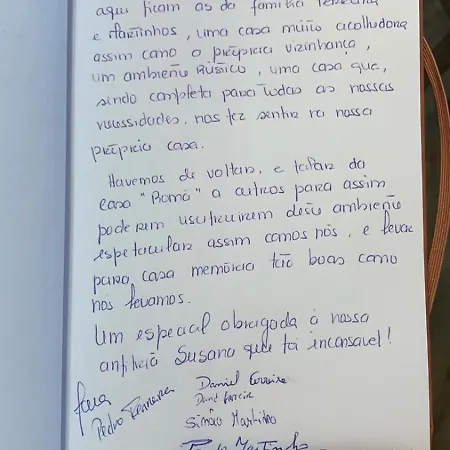 aqui ficam as da familia Ferreira
e Martinhos, uma casa muito acolhedora
assim como o própria vizinhança,
um ambiente RÚSTICO, uma casa que,
sendo completa para todas as nossas
necessidades, nos fez sentir na nossa
própria casa.
Havemos de voltar, e falar da
casa "Romã" a outros para assim
poderem usufruirem deste ambiente
espetacular assim como nós, e levar
para casa memória tão boas como
nós levamos.
Um especial obrigada á nossa
anfitriã Susana que foi incansavel!
Pedro Ferreira
Daniel Ferreira
Simão Martinho
Martinho